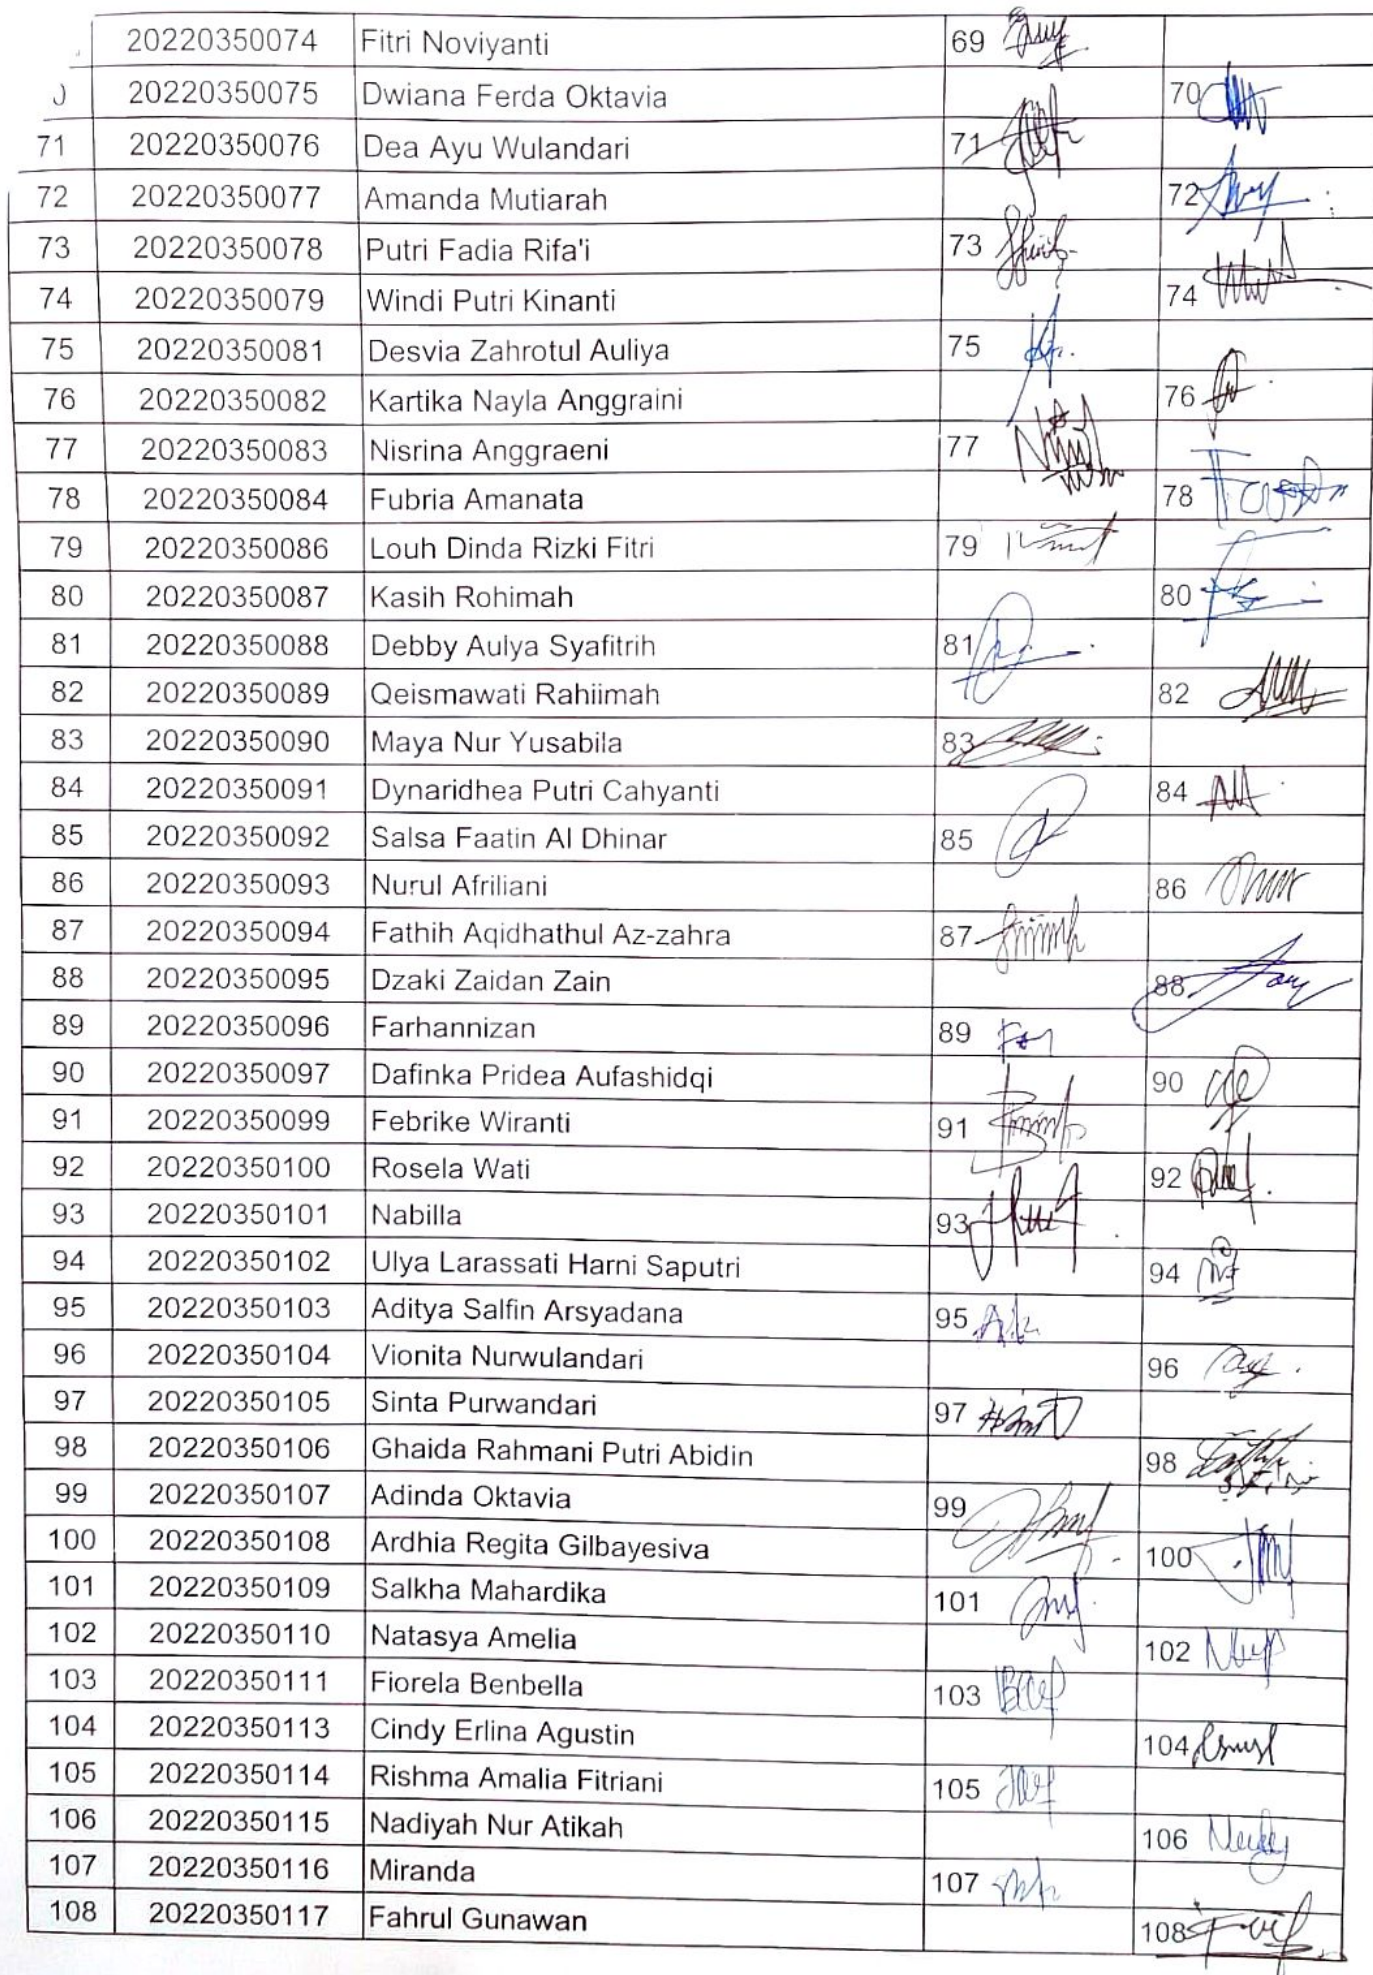 20220350074 Fitri Noviyanti 69
20220350075 Dwiana Ferda Oktavia 70
71 20220350076 Dea Ayu Wulandari 71
72 20220350077 Amanda Mutiarah 72
73 20220350078 Putri Fadia Rifa'i 73
74 20220350079 Windi Putri Kinanti 74
75 20220350081 Desvia Zahrotul Auliya 75
76 20220350082 Kartika Nayla Anggraini 76
77 20220350083 Nisrina Anggraeni 77
78 20220350084 Fubria Amanata 78
79 20220350086 Louh Dinda Rizki Fitri 79
80 20220350087 Kasih Rohimah 80
81 20220350088 Debby Aulya Syafitrih 81
82 20220350089 Qeismawati Rahiimah 82
83 20220350090 Maya Nur Yusabila 83
84 20220350091 Dynaridhea Putri Cahyanti 84
85 20220350092 Salsa Faatin Al Dhinar 85
86 20220350093 Nurul Afriliani 86
87 20220350094 Fathih Aqidhathul Az-zahra 87
88 20220350095 Dzaki Zaidan Zain 88
89 20220350096 Farhannizan 89
90 20220350097 Dafinka Pridea Aufashidqi 90
91 20220350099 Febrike Wiranti 91
92 20220350100 Rosela Wati 92
93 20220350101 Nabilla 93
94 20220350102 Ulya Larassati Harni Saputri 94
95 20220350103 Aditya Salfin Arsyadana 95
96 20220350104 Vionita Nurwulandari 96
97 20220350105 Sinta Purwandari 97
98 20220350106 Ghaida Rahmani Putri Abidin 98
99 20220350107 Adinda Oktavia 99
100 20220350108 Ardhia Regita Gilbayesiva 100
101 20220350109 Salkha Mahardika 101
102 20220350110 Natasya Amelia 102
103 20220350111 Fiorela Benbella 103
104 20220350113 Cindy Erlina Agustin 104
105 20220350114 Rishma Amalia Fitriani 105
106 20220350115 Nadiyah Nur Atikah 106
107 20220350116 Miranda 107
108 20220350117 Fahrul Gunawan 108